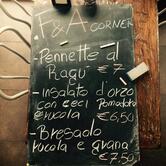 F&A CORNER
- Pennette al
Ragù € 7
- Insalato d'orzo
con ceci Pomodoro
e rucola € 6,50
- Bresaola
rucola e grana
€ 7,50